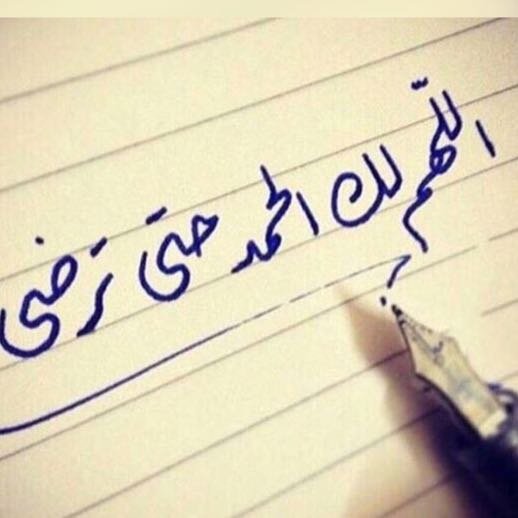 اللّهم لك الحمد حتى ترضى